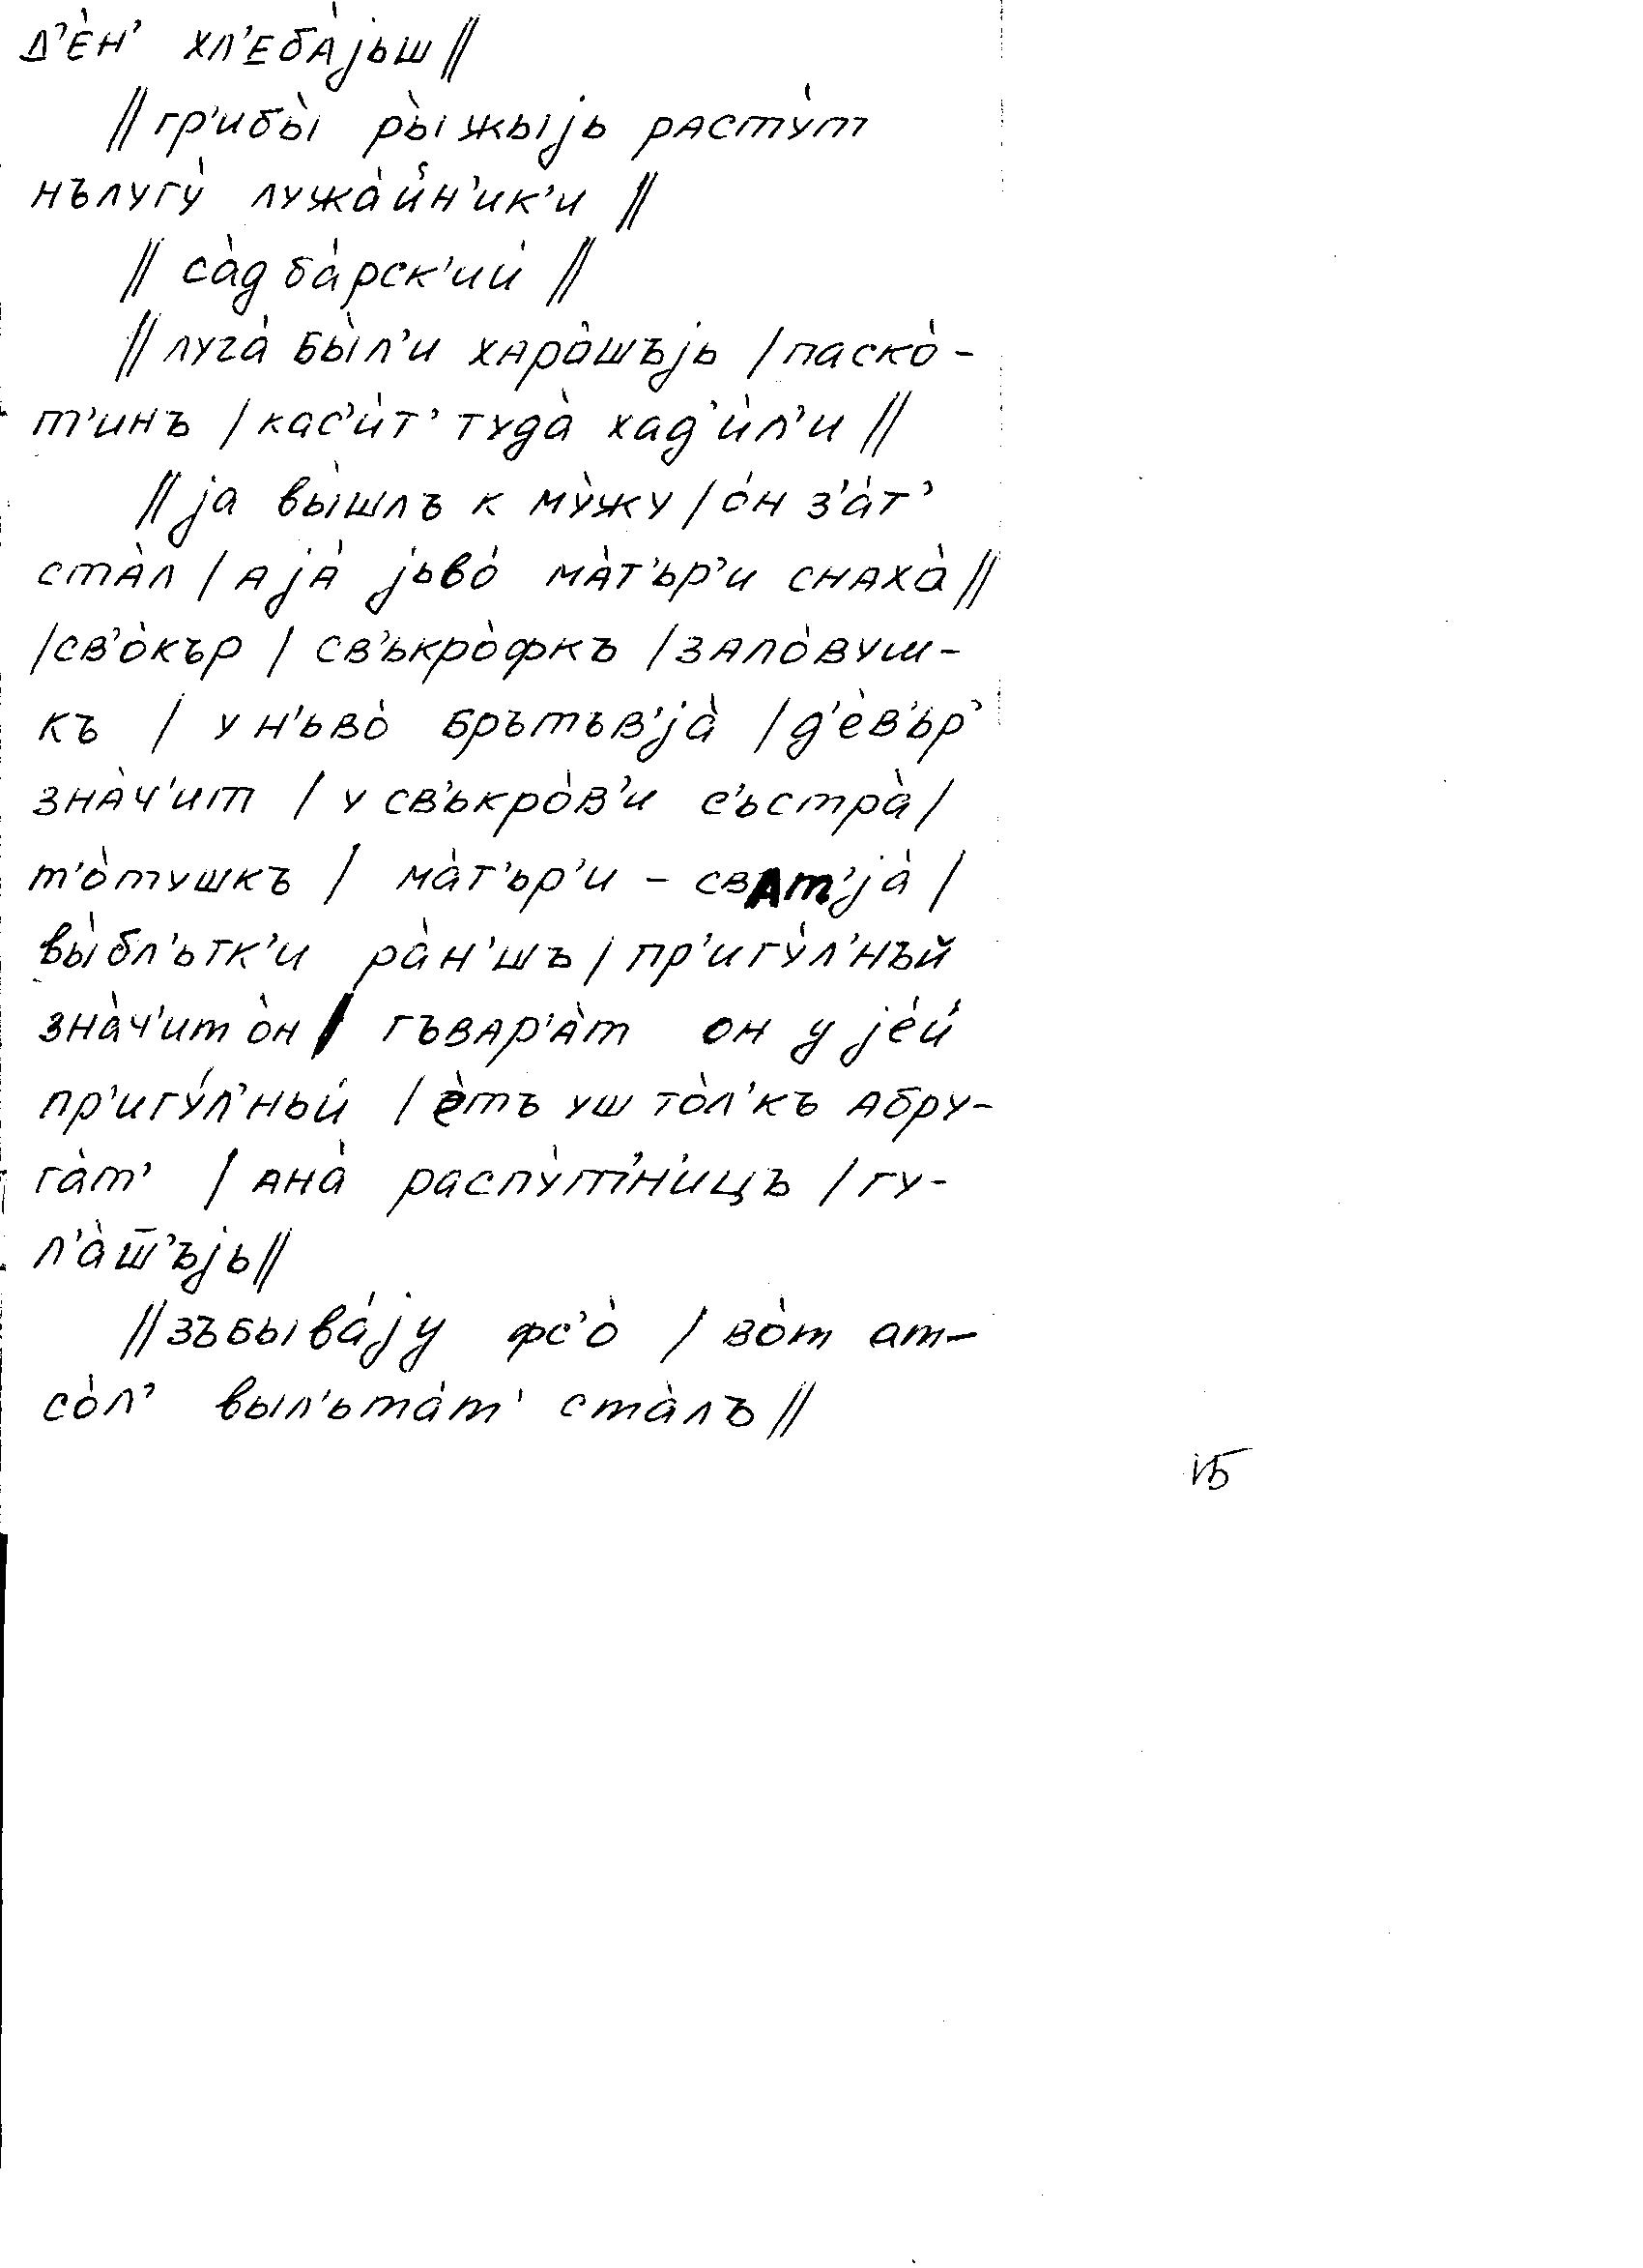 д'е́н' хл'еба́jьш ||
|| гр'ибы́ ры́жыjь расту́т
нълугу́ лужа́йн'ик'и ||
|| са́д ба́рск'ий ||
|| луга́ бы́л'и харо́шъjь | паско́-
т'инъ | кас'и́т' туда́ хад'и́л'и ||
|| jа вы́шлъ к му́жу | о́н з'а́т'
ста́л | а jа́ jьво́ ма́т'ьр'и снаха́ ||
| св'о́кър | св'ькро́фкъ | зало́вуш-
къ | у н'ьво́ брътъв'jа́ | д'е́в'ьр'
зна́ч'ит | у св'ькро́в'и с'ьстра́ |
т'о́тушкъ | ма́т'ьр'и - сват'jа́ |
вы́бл'ьтк'и ра́н'шъ | пр'игу́л'нъй
зна́ч'ит о́н | гъвар'а́т он у jе́й
пр'игу́л'ньй | е́тъ уш то́л'къ абру-
га́т' | ана́ распу́т'н'ицъ | гу-
л'а́ш̅'ъjь ||
|| зъбыва́jу фс'о́ | во́т ат-
со́л' выл'ьта́т' ста́лъ ||
15